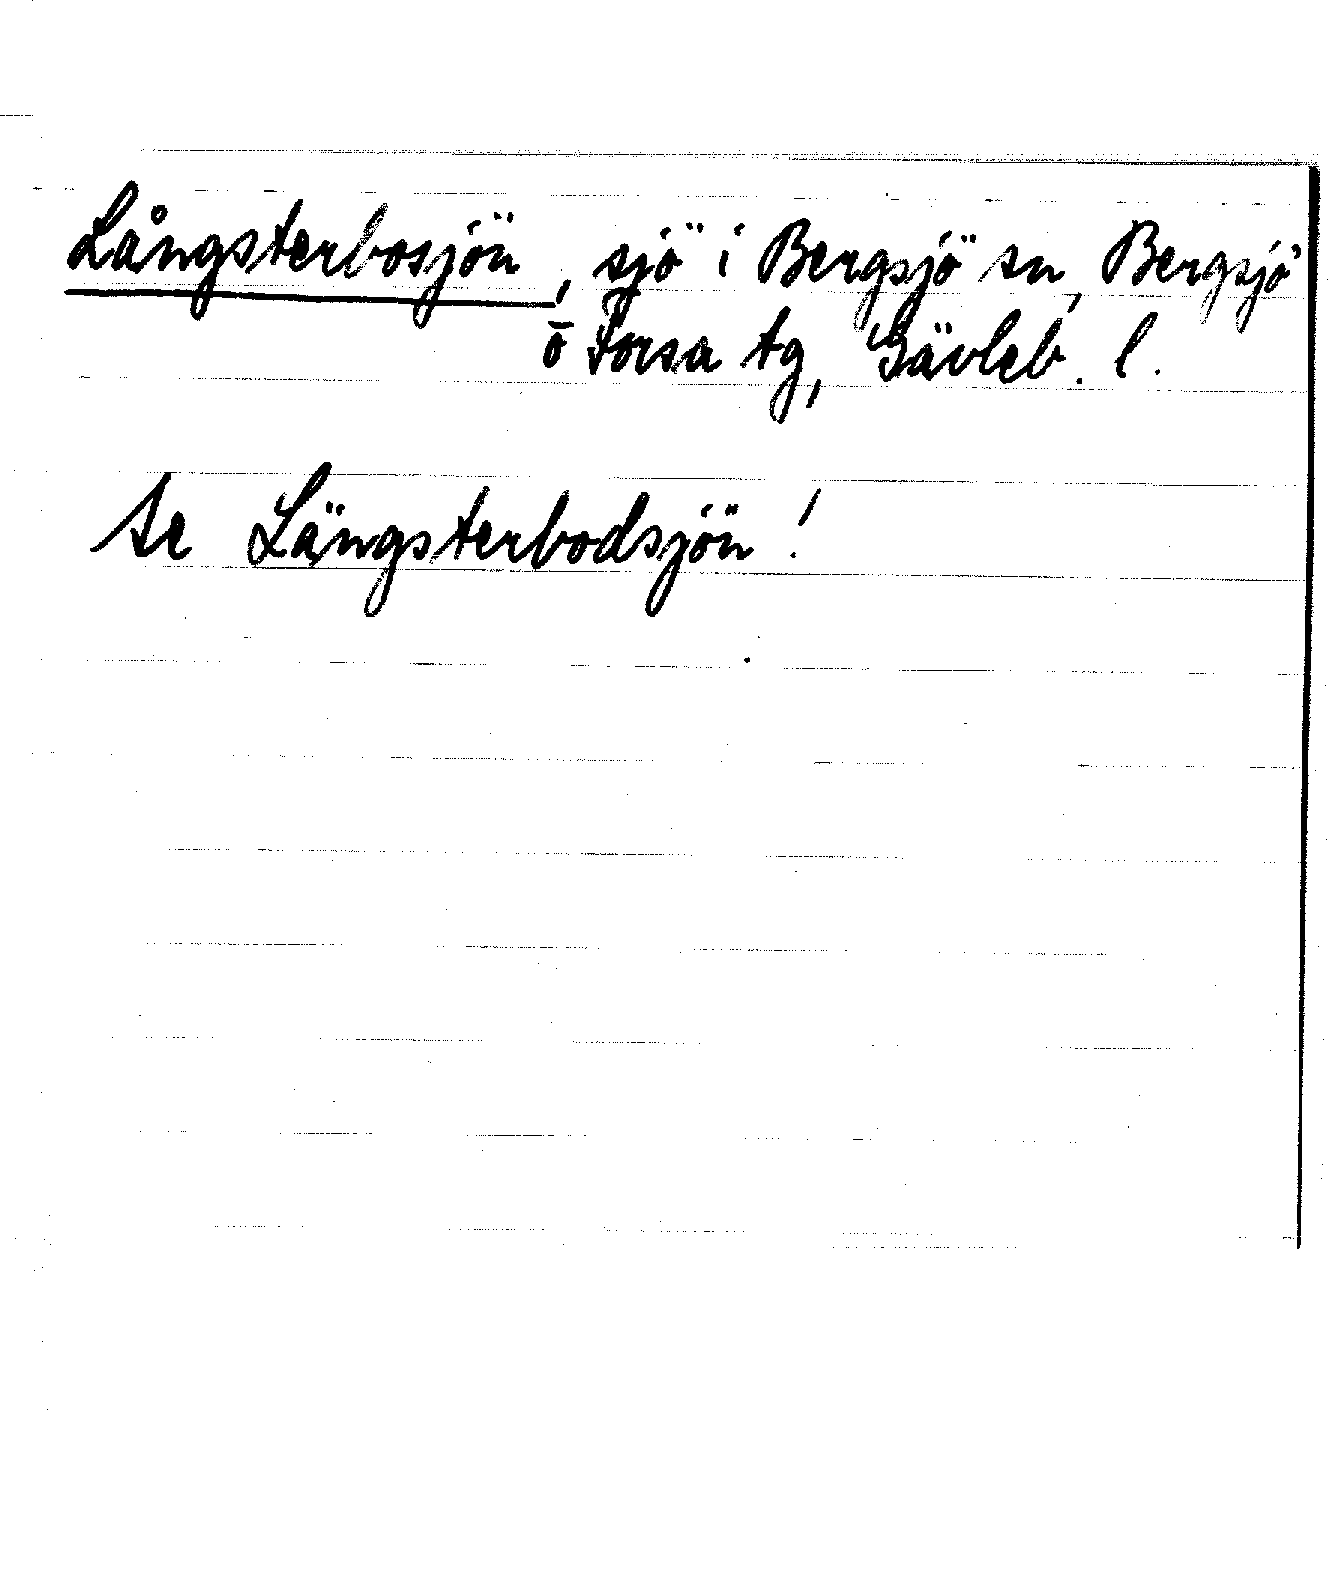 Långsterbosjön, sjö i Bergsjö sn, Bergsjö
o Forsa tg, Gävleb. l.
Se Längsterbodsjön!